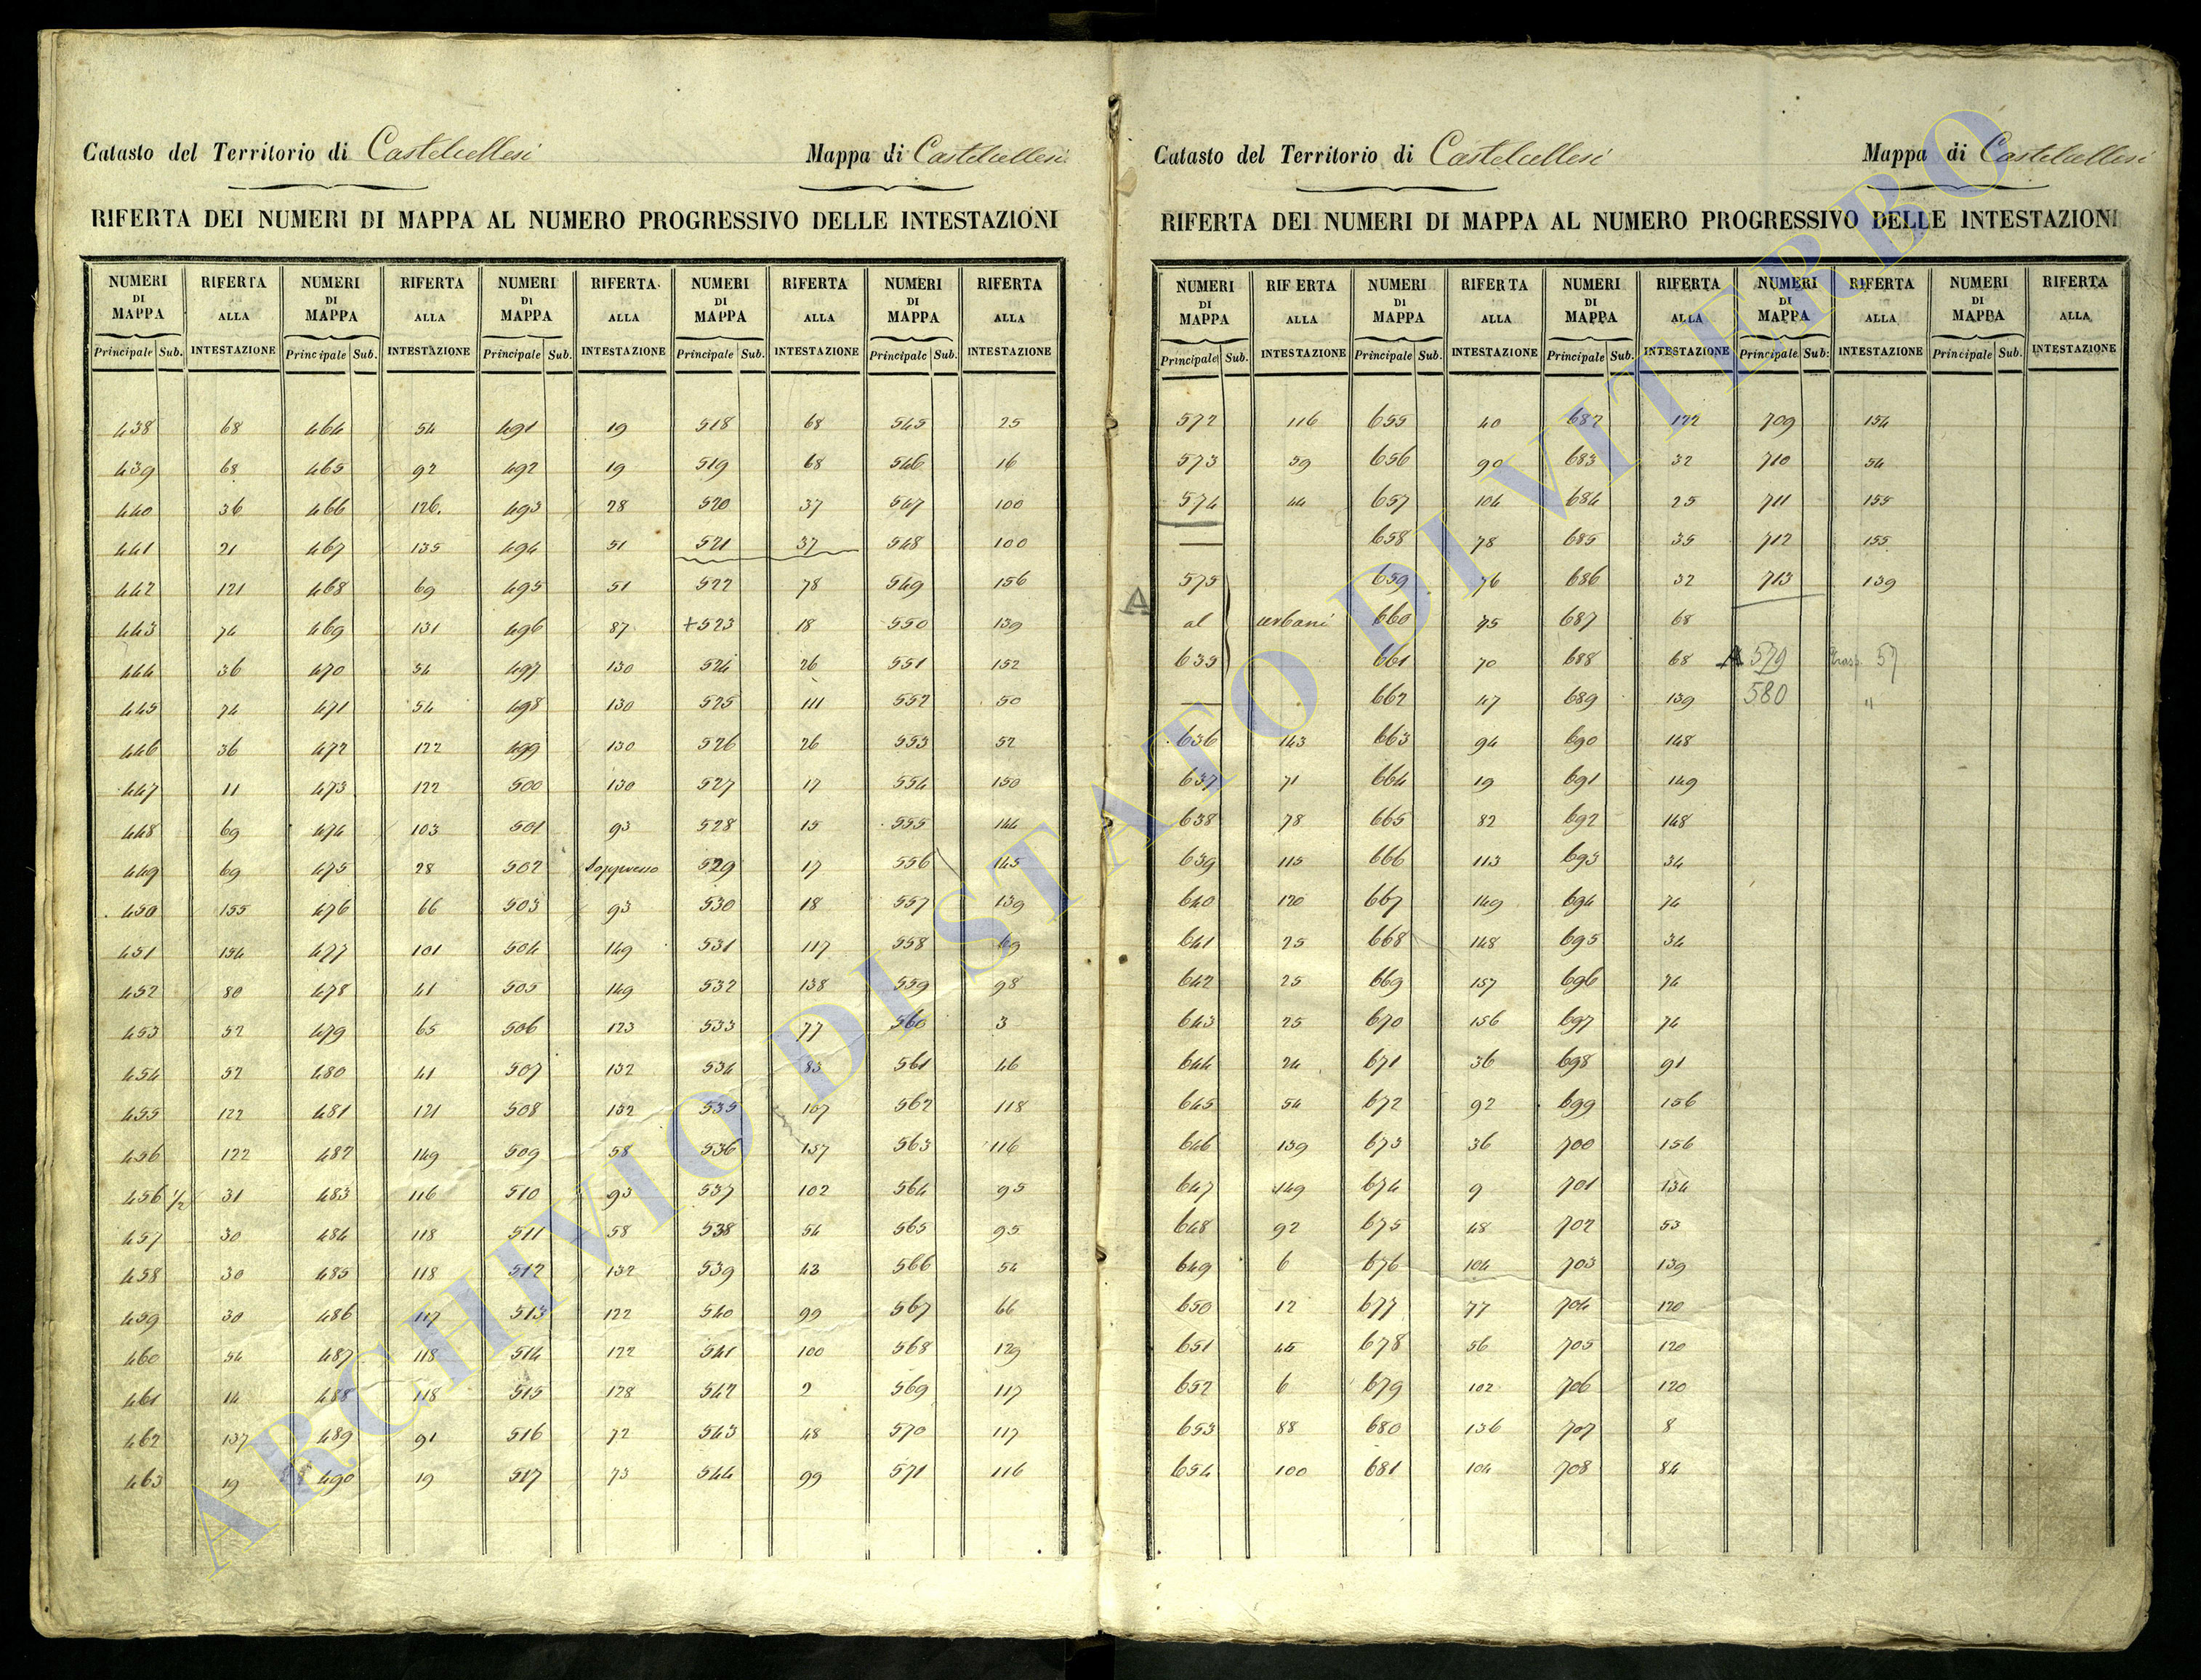 Catasto del Territorio di Castelcellesi Mappa di Castelcellesi
RIFERTA DEI NUMERI DI MAPPA AL NUMERO PROGRESSIVO DELLE INTESTAZIONI
NUMERI RIFERTA NUMERI RIFERTA NUMERI RIFERTA NUMERI RIFERTA NUMERI RIFERTA
DI DI DI DI DI
MAPPA ALLA MAPPA ALLA MAPPA ALLA MAPPA ALLA MAPPA ALLA
Principale Sub. INTESTAZIONE Principale Sub. INTESTAZIONE Principale Sub. INTESTAZIONE Principale Sub. INTESTAZIONE Principale Sub. INTESTAZIONE
438 68 464 54 491 19 518 68 545 25
439 68 465 92 492 19 519 68 546 16
440 36 466 126. 493 28 520 37 547 100
441 21 467 135 494 51 521 37 548 100
442 121 468 69 495 51 522 78 549 156
443 74 469 131 496 87 +523 18 550 139
444 36 470 54 497 130 524 26 551 152
445 74 471 54 498 130 525 111 552 50
446 36 472 122 499 130 526 26 553 52
447 11 473 122 500 130 527 17 554 150
448 69 474 103 501 93 528 15 555 144
449 69 475 28 502 Soppresso 529 17 556 145
450 155 476 66 503 93 530 18 557 139
451 154 477 101 504 149 531 117 558 69
452 80 478 41 505 149 532 138 559 98
453 52 479 65 506 123 533 77 560 3
454 52 480 41 507 132 534 83 561 46
455 122 481 121 508 132 535 137 562 118
456 122 482 149 509 58 536 137 563 116
456 1/2 31 483 116 510 93 537 102 564 95
457 30 484 118 511 58 538 54 565 95
458 30 485 118 512 132 539 43 566 54
459 30 486 117 513 122 540 99 567 66
460 54 487 118 514 122 541 100 568 129
461 14 488 118 515 128 542 2 569 117
462 137 489 91 516 72 543 48 570 117
463 19 490 19 517 73 544 99 571 116
Catasto del Territorio di Castelcellesi Mappa di Castelcellesi
RIFERTA DEI NUMERI DI MAPPA AL NUMERO PROGRESSIVO DELLE INTESTAZIONI
NUMERI RIFERTA NUMERI RIFERTA NUMERI RIFERTA NUMERI RIFERTA NUMERI RIFERTA
DI DI DI DI DI
MAPPA ALLA MAPPA ALLA MAPPA ALLA MAPPA ALLA MAPPA ALLA
Principale Sub. INTESTAZIONE Principale Sub. INTESTAZIONE Principale Sub. INTESTAZIONE Principale Sub: INTESTAZIONE Principale Sub. INTESTAZIONE
572 116 655 40 682 122 709 154
573 59 656 90 683 32 710 54
574 44 657 104 684 25 711 155
658 78 685 35 712 155
575 659 76 686 32 713 139
A al urbani 660 75 687 68
635 661 70 688 68 A 579 57
662 47 689 139 580 "
636 143 663 94 690 148
637 71 664 19 691 149
638 78 665 82 692 148
639 115 666 113 693 34
640 120 667 149 694 74
641 25 668 148 695 34
642 25 669 157 696 74
643 25 670 156 697 74
644 24 671 36 698 91
645 54 672 92 699 156
646 139 673 36 700 156
647 149 674 9 701 134
648 92 675 48 702 53
649 6 676 104 703 139
650 12 677 77 704 120
651 45 678 56 705 120
652 6 679 102 706 120
653 88 680 136 707 8
654 100 681 104 708 84
ARCHIVIO DI STATO DI VITERBO